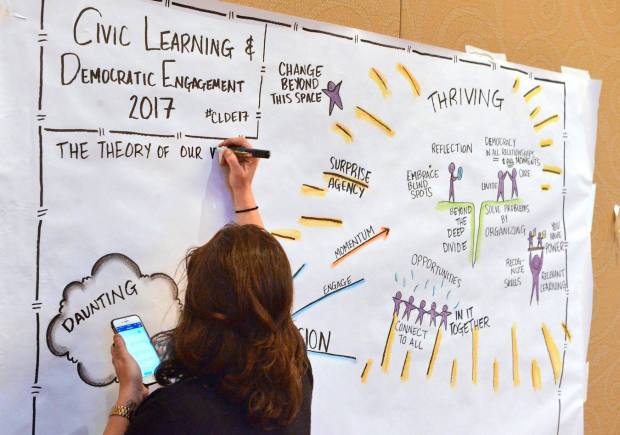 CIVIC LEARNING &
DEMOCRATIC ENGAGEMENT
2017 #CLDE17
THE THEORY OF OUR
CHANGE
BEYOND
THIS SPACE
THRIVING
SURPRISE
AGENCY
MOMENTUM
ENGAGE
DAUNTING
REFLECTION
EMBRACE
BLIND
SPOTS
BEYOND
THE
DEEP
DIVIDE
DEMOCRACY
IN ALL RELATIONSHIPS
MOMENTS
UNITE
CORE
SOLVE PROBLEMS
BY
ORGANIZING
YOU
HAVE
POWER
RECOG-
NIZE
SKILLS
RELEVANT
LEARNING
OPPORTUNITIES
CONNECT
TO ALL
IN IT
TOGETHER